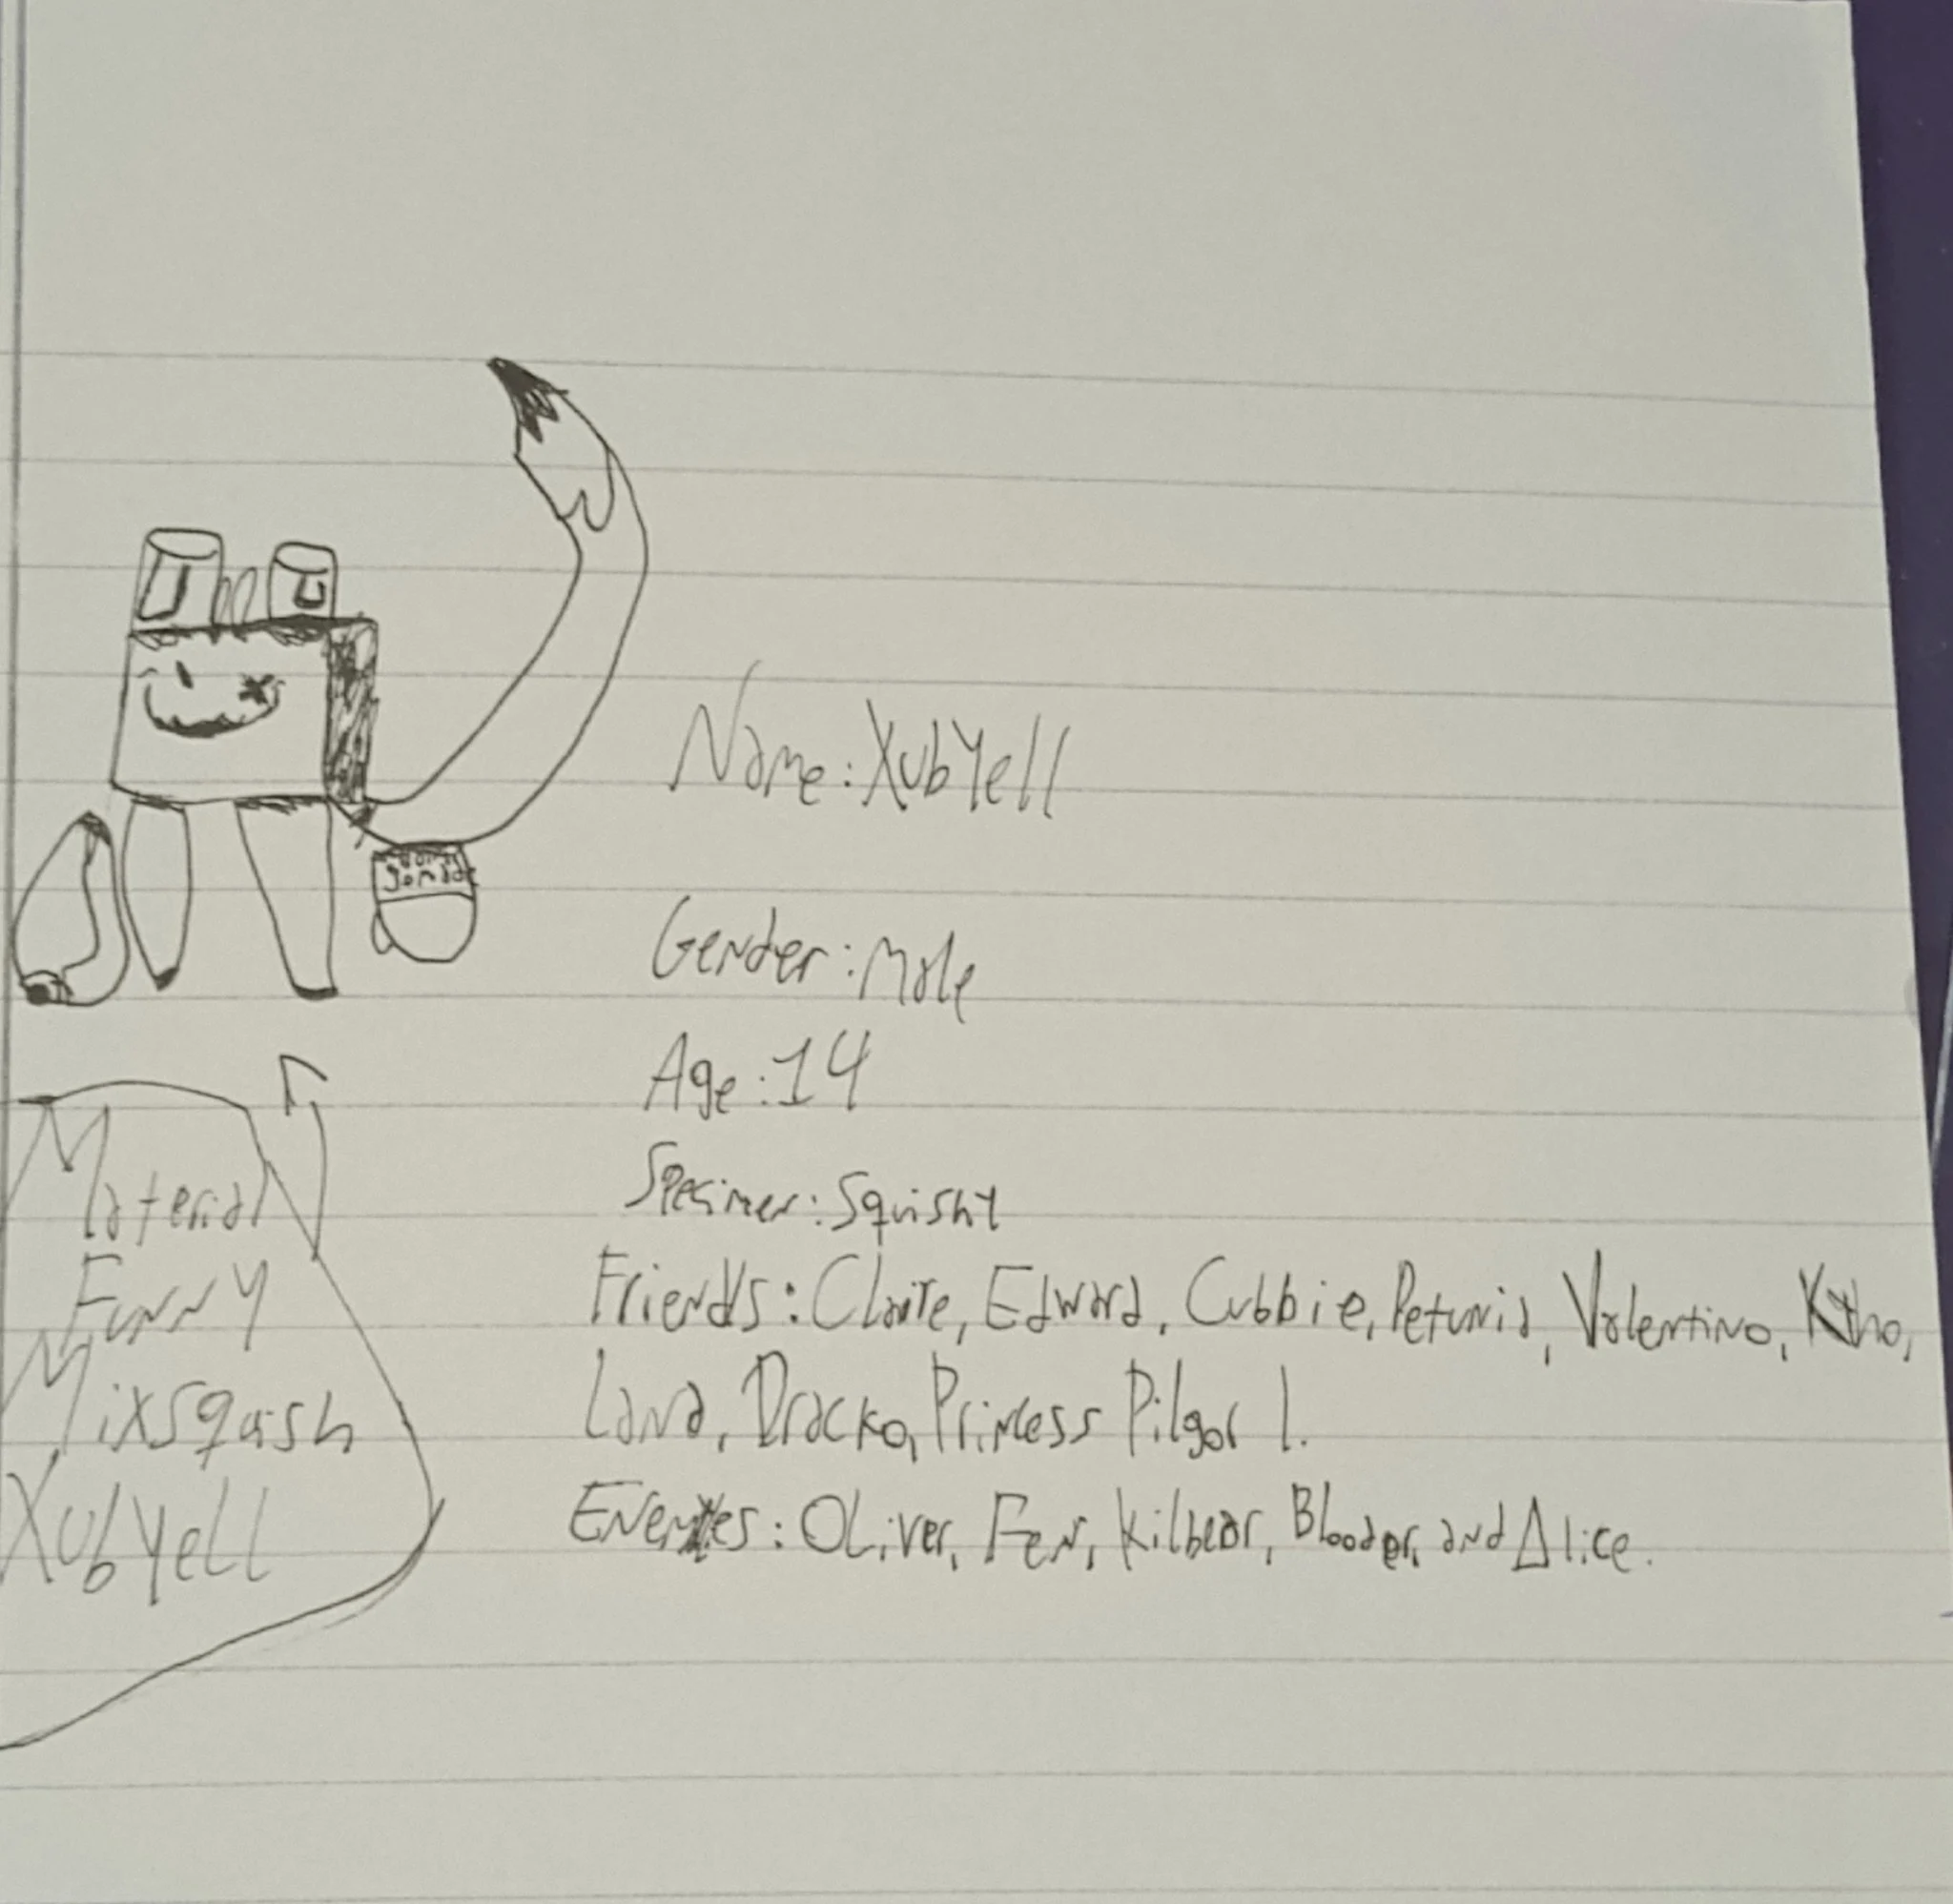 Name: XubYell
Gender: Male
Age: 14
Specimen: Squishy
Friends: Claire, Edward, Cubbie, Petunia, Valentino,
Land, Dracko, Princess Pilgor I.
Enemies: OLiver, Fen, Kilbear, Blooder, and Alice.
Material
Funny
Mixsquish
XubYell